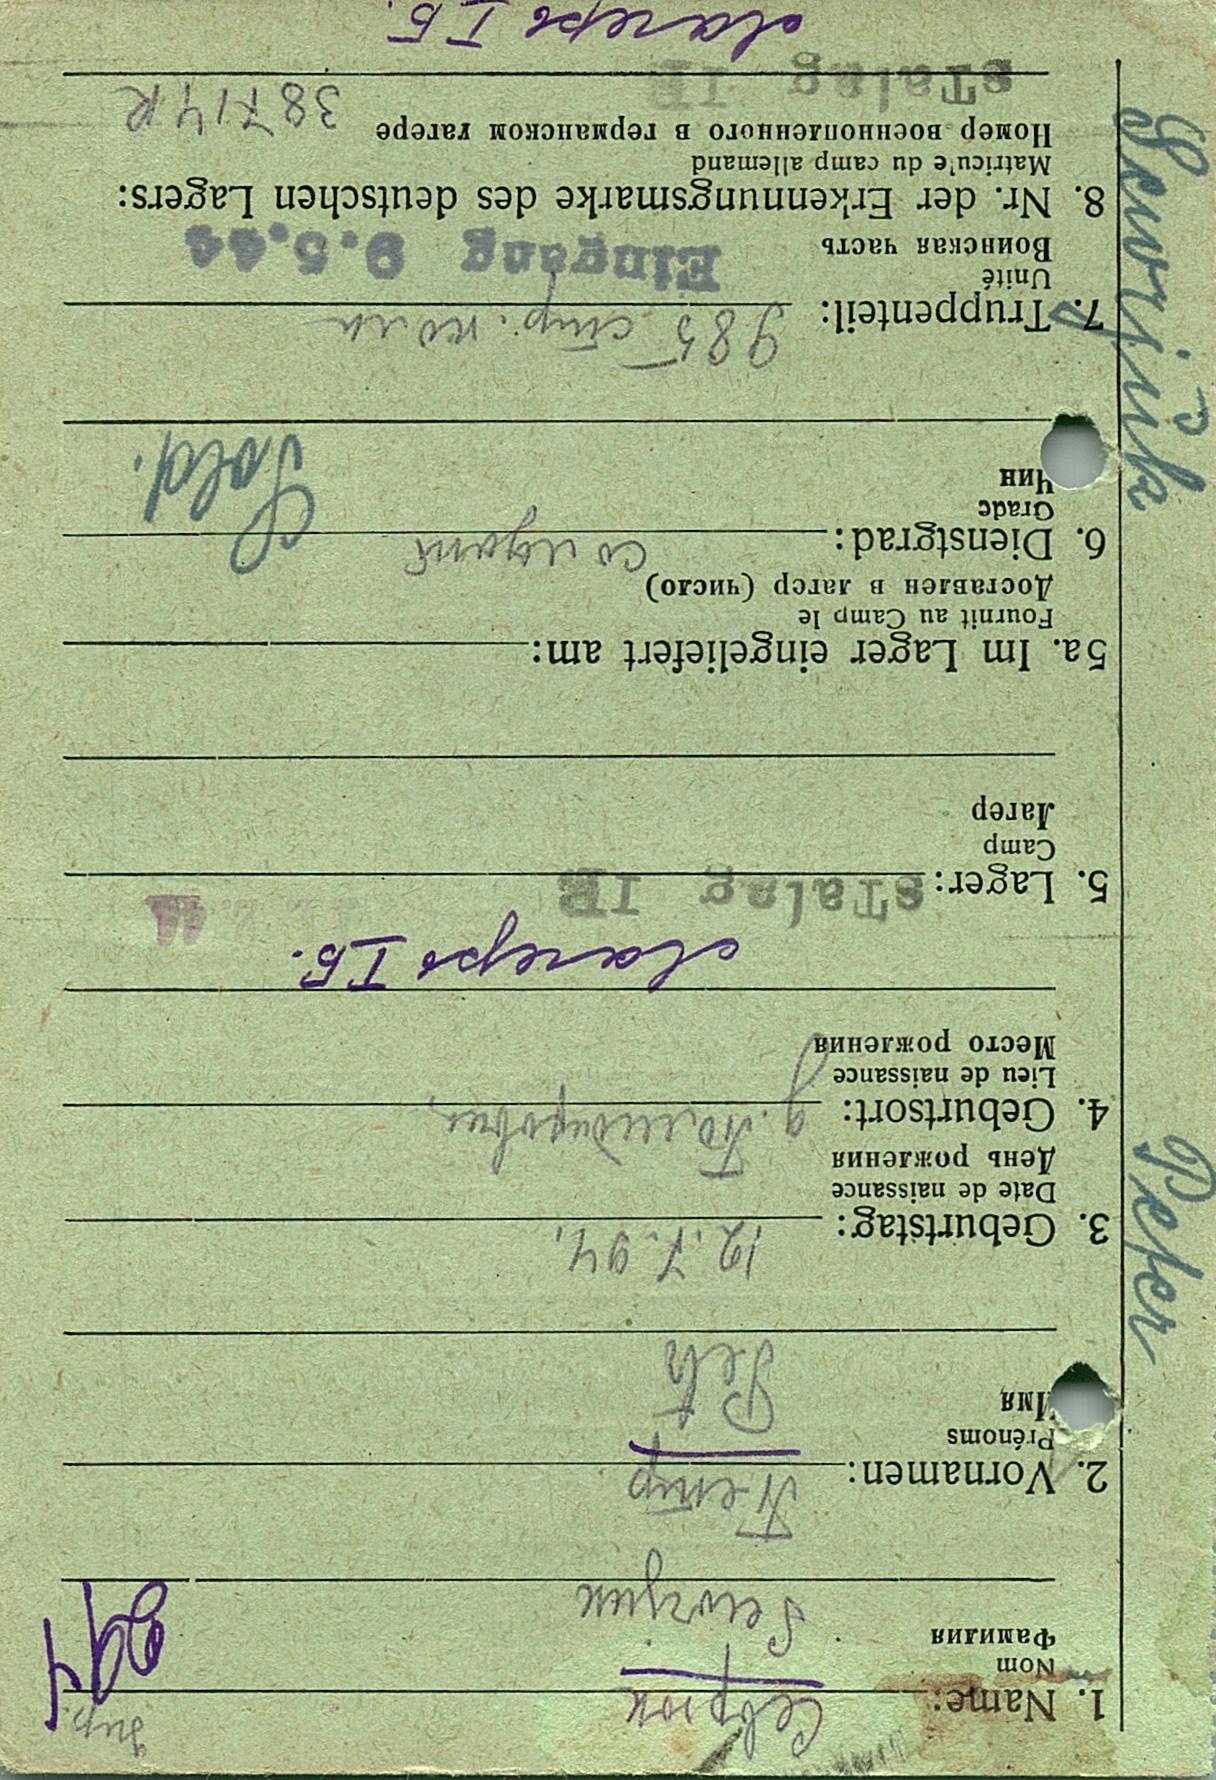 1. Name: Севрюк
Nom
Фамилия
Sewrjuk
2. Vornamen: Петр
Prénoms
Имя
Pet
3. Geburtstag: 12.7.94.
Date de naissance
День рождения
4. Geburtsort:
Lieu de naissance
Место рождения
лагерь I Б.
5. Lager: sTalag IB
Camp
Лагер
5a. Im Lager eingeliefert am:
Fournit au Camp le
Доставлен в лагер (число)
6. Dienstgrad: солдат Sold.
Grade
Чин
7. Truppenteil: 985 стр. полк
Unité
Воинская часть
Eingang 9.5.44
8. Nr. der Erkennungsmarke des deutschen Lagers:
Matricu'e du camp allemand
Номер военнопленного в германском лагере 38714 R
sTalag IB
лагерь I Б.
Peter
Sewrjuk